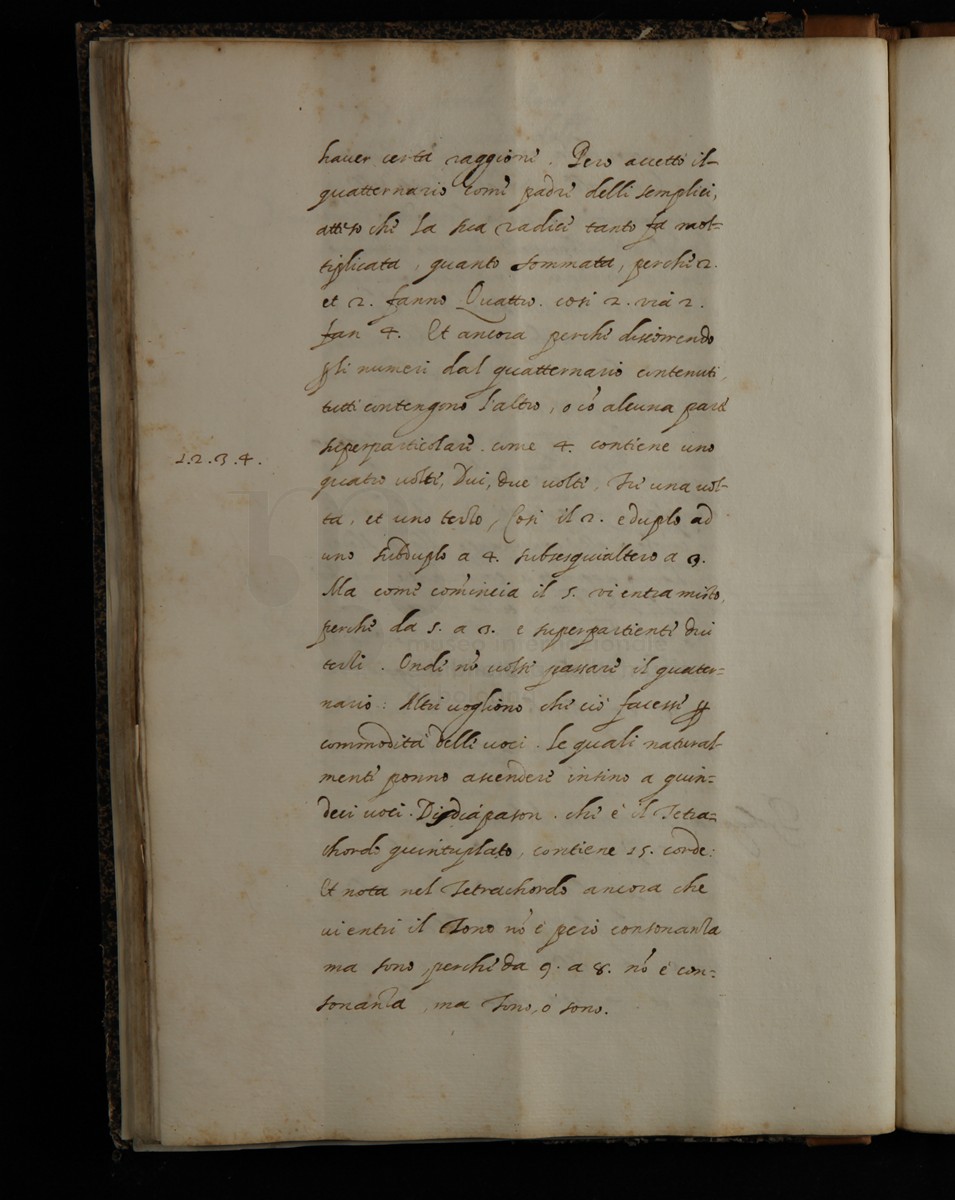 haver certa raggione. Pero accettò il
quatternario come padre delli semplici,
atteso che la sua radice tanto fa mol=
tiplicata, quanto sommata, perche 2.
et 2. fanno Quattro. cosi 2. via 2.
fan 4. Et ancora perche discorrendo
gli numeri dal quatternario contenuti,
tutti contengono l'altro, o có alcuna parte
superparticolare. come 4. contiene uno
1.2.3.4.
quatro volte, Dui, due volte, Tre una vol=
ta, et uno terzo, Cosi il 2. e duplo ad
uno subduplo a 4. subsesquialtero a 3.
Ma come comincia il 5. vi entra misto,
perche da 5. a 3. e superpartiente dui
terzi. Onde nó volse passare il quater=
nario: Altri vogliono che ciò facesse ꝑ
commodità delle voci. Le quali natural=
mente ponno ascendere insino a quin=
deci voci. Disdiápason. che è il Tetra=
chordo quintuplato, contiene 15. corde:
Et nota nel Tetrachordo ancora che
vi entri il Tono nó è però consonanza
ma sono, perche da 9. a 8. nó è con=
sonanza, ma Tono, ó sono.
museo internazionale